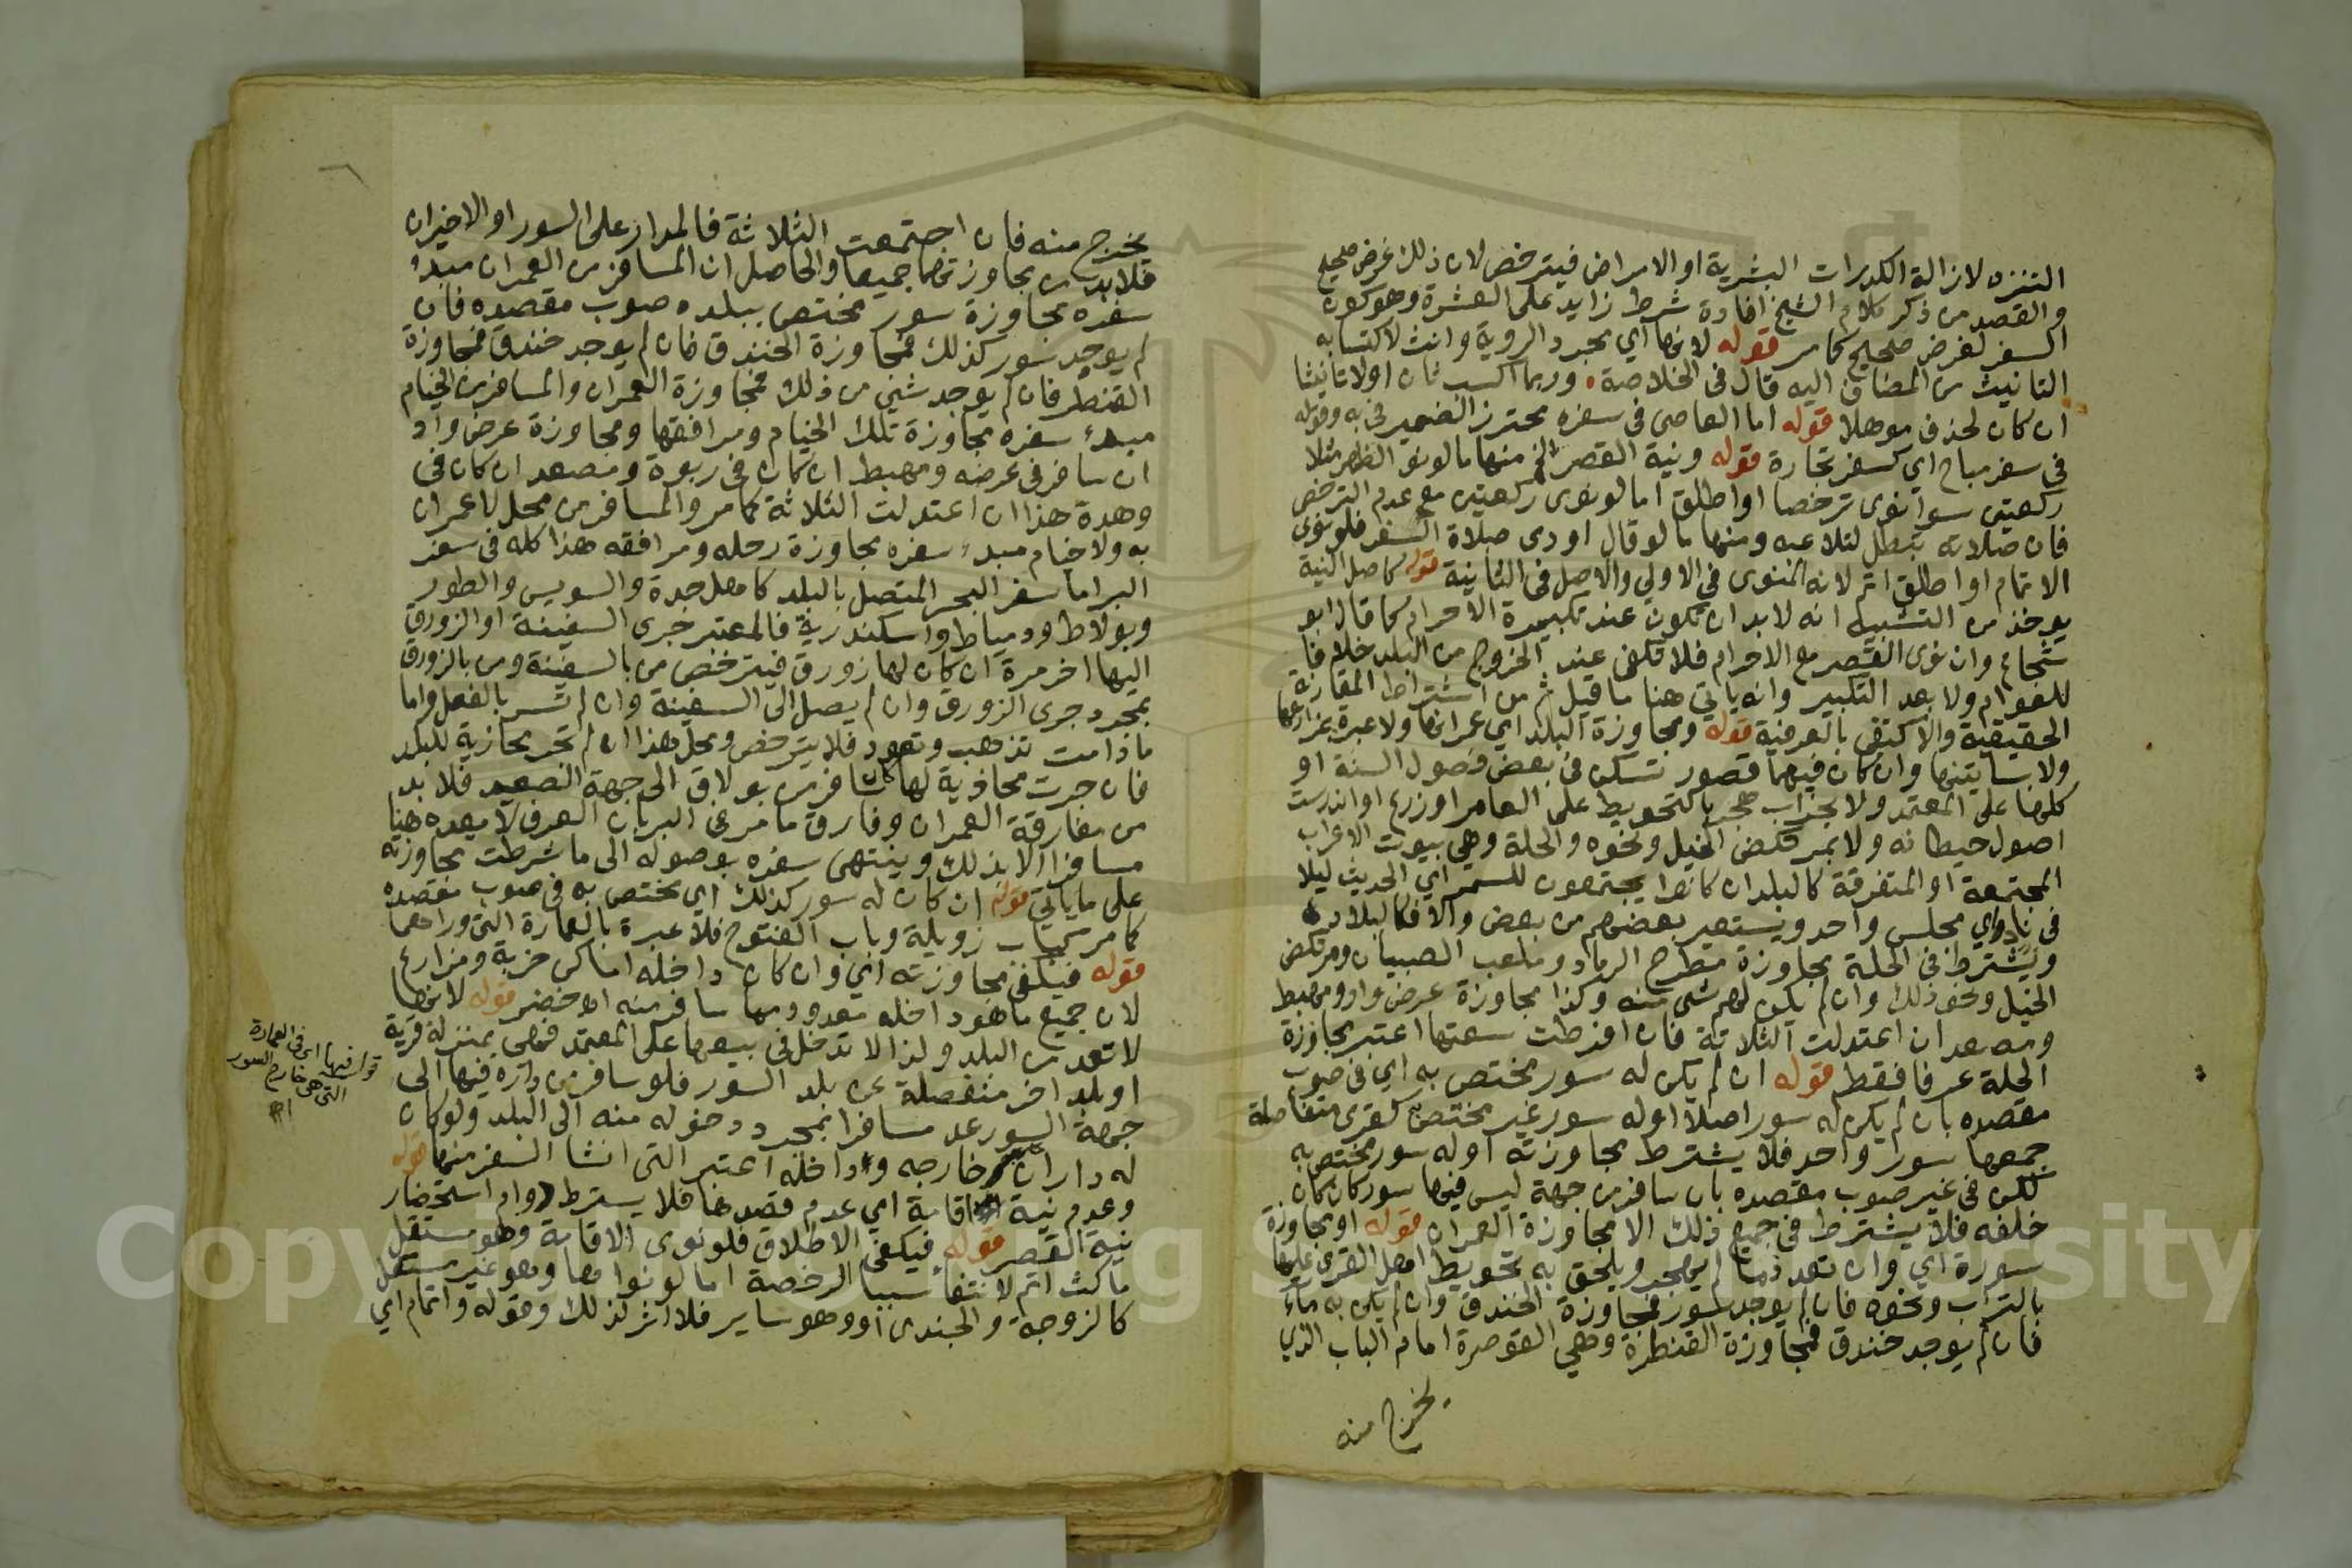 التنزه لازالة الكدرات البشرية او الامراض فيترخص لان ذلك غرض صحيح
والقصد من ذكر كلام الشيخ افادة شرط زايد على العشرة وهو كون
السفر لغرض صحيح كما مر قوله لانها اي مجرد الروية وانث لاكتسابه
التانيث من المضاف اليه قال في الخلاصة وربما اكسب ثان اولا تانيثا
ان كان لحذف موهلا قوله اما العاصي في سفره محترز الضمير في به وقوله
في سفر مباح اي كسفر تجارة قوله ونية القصر الخ منها ما لو نوى الظهر مثلا
ركعتين سوا نوى ترخصا او اطلق اما لو نوى ركعتين مع عدم الترخص
فان صلاته تبطل لتلاعبه ومنها ما لو قال اودى صلاة السفر فلو نوى
الاتمام او اطلق اتم لانه المنوى في الاولى والاصل في الثانية قوله كاصل النية
يوخذ من التشبيه انه لا بد ان تكون عند تكبيرة الاحرام كما قال ابو
شجاع وان نوى القصر مع الاحرام فلا تكفي عند الخروج من البلد خلافا
للعوام ولا بعد التكبير وانه ياتي هنا ما قيل ثم من اشتراط المقارنة
الحقيقية والاكتفى بالعرفية قوله ومجاوزة البلد اي عمرانها ولا عبرة بمزارعها
ولا بساتينها وان كان فيهما قصور تسكن في بعض فصول السنة او
كلها على المعتمد ولا بخراب هجر بالتحويط على العامر او زرع او اندرست
اصول حيطانه ولا بمركض الخيل ونحوه والحلة وهي بيوت الاعراب
المجتمعة او المتفرقة كالبلد ان كانوا يجتمعون للسمر اي الحديث ليلا
في ناد واي مجلس واحد ويستعير بعضهم من بعض والا فكالبلاد
ويشترط في الحلة مجاوزة مطرح الرماد وملعب الصبيان ومركض
الخيل ونحو ذلك وان لم يكن لهم شى منه وكذا مجاوزة عرض واد ومهبط
ومصعد ان اعتدلت الثلاثة فان افرطت سعتها اعتبر مجاوزة
الحلة عرفا فقط قوله ان لم يكن له سور مختص به اي في صوب
مقصده بان لم يكن له سور اصلا او له سور غير مختص كقرى متفاصلة
جمعها سور واحد فلا يشترط مجاوزته او له سور مختص به
لكن في غير صوب مقصده بان سافر من جهة ليس فيها سور كان كان
خلفه فلا يشترط في جميع ذلك الا مجاوزة العمران قوله او مجاوزة
سورة اي وان تعدد ما لم يهجر ويلحق به تحويط اهل القرى عليها
بالتراب ونحوه فان لم يوجد سور فمجاوزة الخندق وان لم يكن به ماء
فان لم يوجد خندق فمجاوزة القنطرة وهي القوصرة امام الباب الذي
يخرج منه
يخرج منه فان اجتمعت الثلاثة فالمدار على السور او الاخيران
فلا بد من مجاوزتهما جميعا والحاصل ان المسافر من العمران مبدؤ
سفره مجاوزة سور مختص ببلده صوب مقصده فان
لم يوجد سور كذلك فمجاوزة الخندق فان لم يوجد خندق فمجاوزة
القنطر فان لم يوجد شئ من ذلك فمجاوزة العمران والمسافر من الخيام
مبدء سفره مجاوزة تلك الخيام ومرافقها ومجاوزة عرض واد
ان سافر في عرضه ومهبط ان كان في ربوة ومصعد ان كان في
وهدة هذا ان اعتدلت الثلاثة كما مر والمسافر من محل لا عمران
به ولا خيام مبدء سفره مجاوزة رحله ومرافقه هذا كله في سفر
البر اما سفر البحر المتصل بالبلد كاهل جدة والسويس والطور
وبولاط ودمياط واسكندرية فالمعتبر جرى السفينة او الزورق
اليها اخر مرة ان كان لها زورق فيترخص من بالسفينة ومن بالزورق
بمجرد جرى الزورق وان لم يصل الى السفينة وان لم تسر بالفعل واما
ما دامت تذهب وتعود فلا يترخص ومحل هذا ان لم تجر محاذية للبلد
فان جرت محاذية لها كان سافر من بولاق الى جهة الصعيد فلا بد
من مفارقة العمران وفارق ما مر في البر بان العرف لا يعده هنا
مسافرا الا بذلك وينتهى سفره بوصوله الى ما شرطت مجاوزته
على ما ياتي قوله ان كان له سور كذلك اي مختص به في صوب مقصده
كما مر كباب زويلة وباب الفتوح فلا عبرة بالعمارة التي وراءهما
قوله فيكفي مجاوزته اي وان كان داخله اماكن خربة ومزارع
لان جميع ما هو داخله معدود مما سافر منه اه خضر قوله لانها
لا تعد من البلد ولذا لا تدخل في بيعها على المعتمد فهي بمنزلة قرية
او بلد اخر منفصلة عن بلد السور فلو سافر من داره فيها الى
جهة السور عد مسافرا بمجرد دخوله منه الى البلد ولو كان
له داران خارجه وداخله اعتبر التي انشا السفر منها قوله
وعدم نية اقامة اي عدم قصدها فلا يسترط دوام استحضار
نية القصر قوله فيكفي الاطلاق فلو نوى الاقامة وهو مستقل
ماكث اتم لانتفاء سبب الرخصة اما لو نواها وهو غير مستقل
كالزوجة والجندى او وهو ساير فلا اثر لذلك وقوله واتمام اي
قوله فيها اي في العمارة
التي هي خارج السور
اه
Copyright © King Saud University